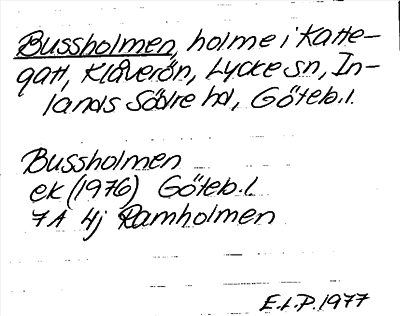 Bussholmen, holme i Katte-
gatt, Klåverön, Lycke sn, In-
lands Södre hd, Göteb.l.
Bussholmen
ek (1976) Göteb.l
7A 4j Ramholmen
E.L.P. 1977